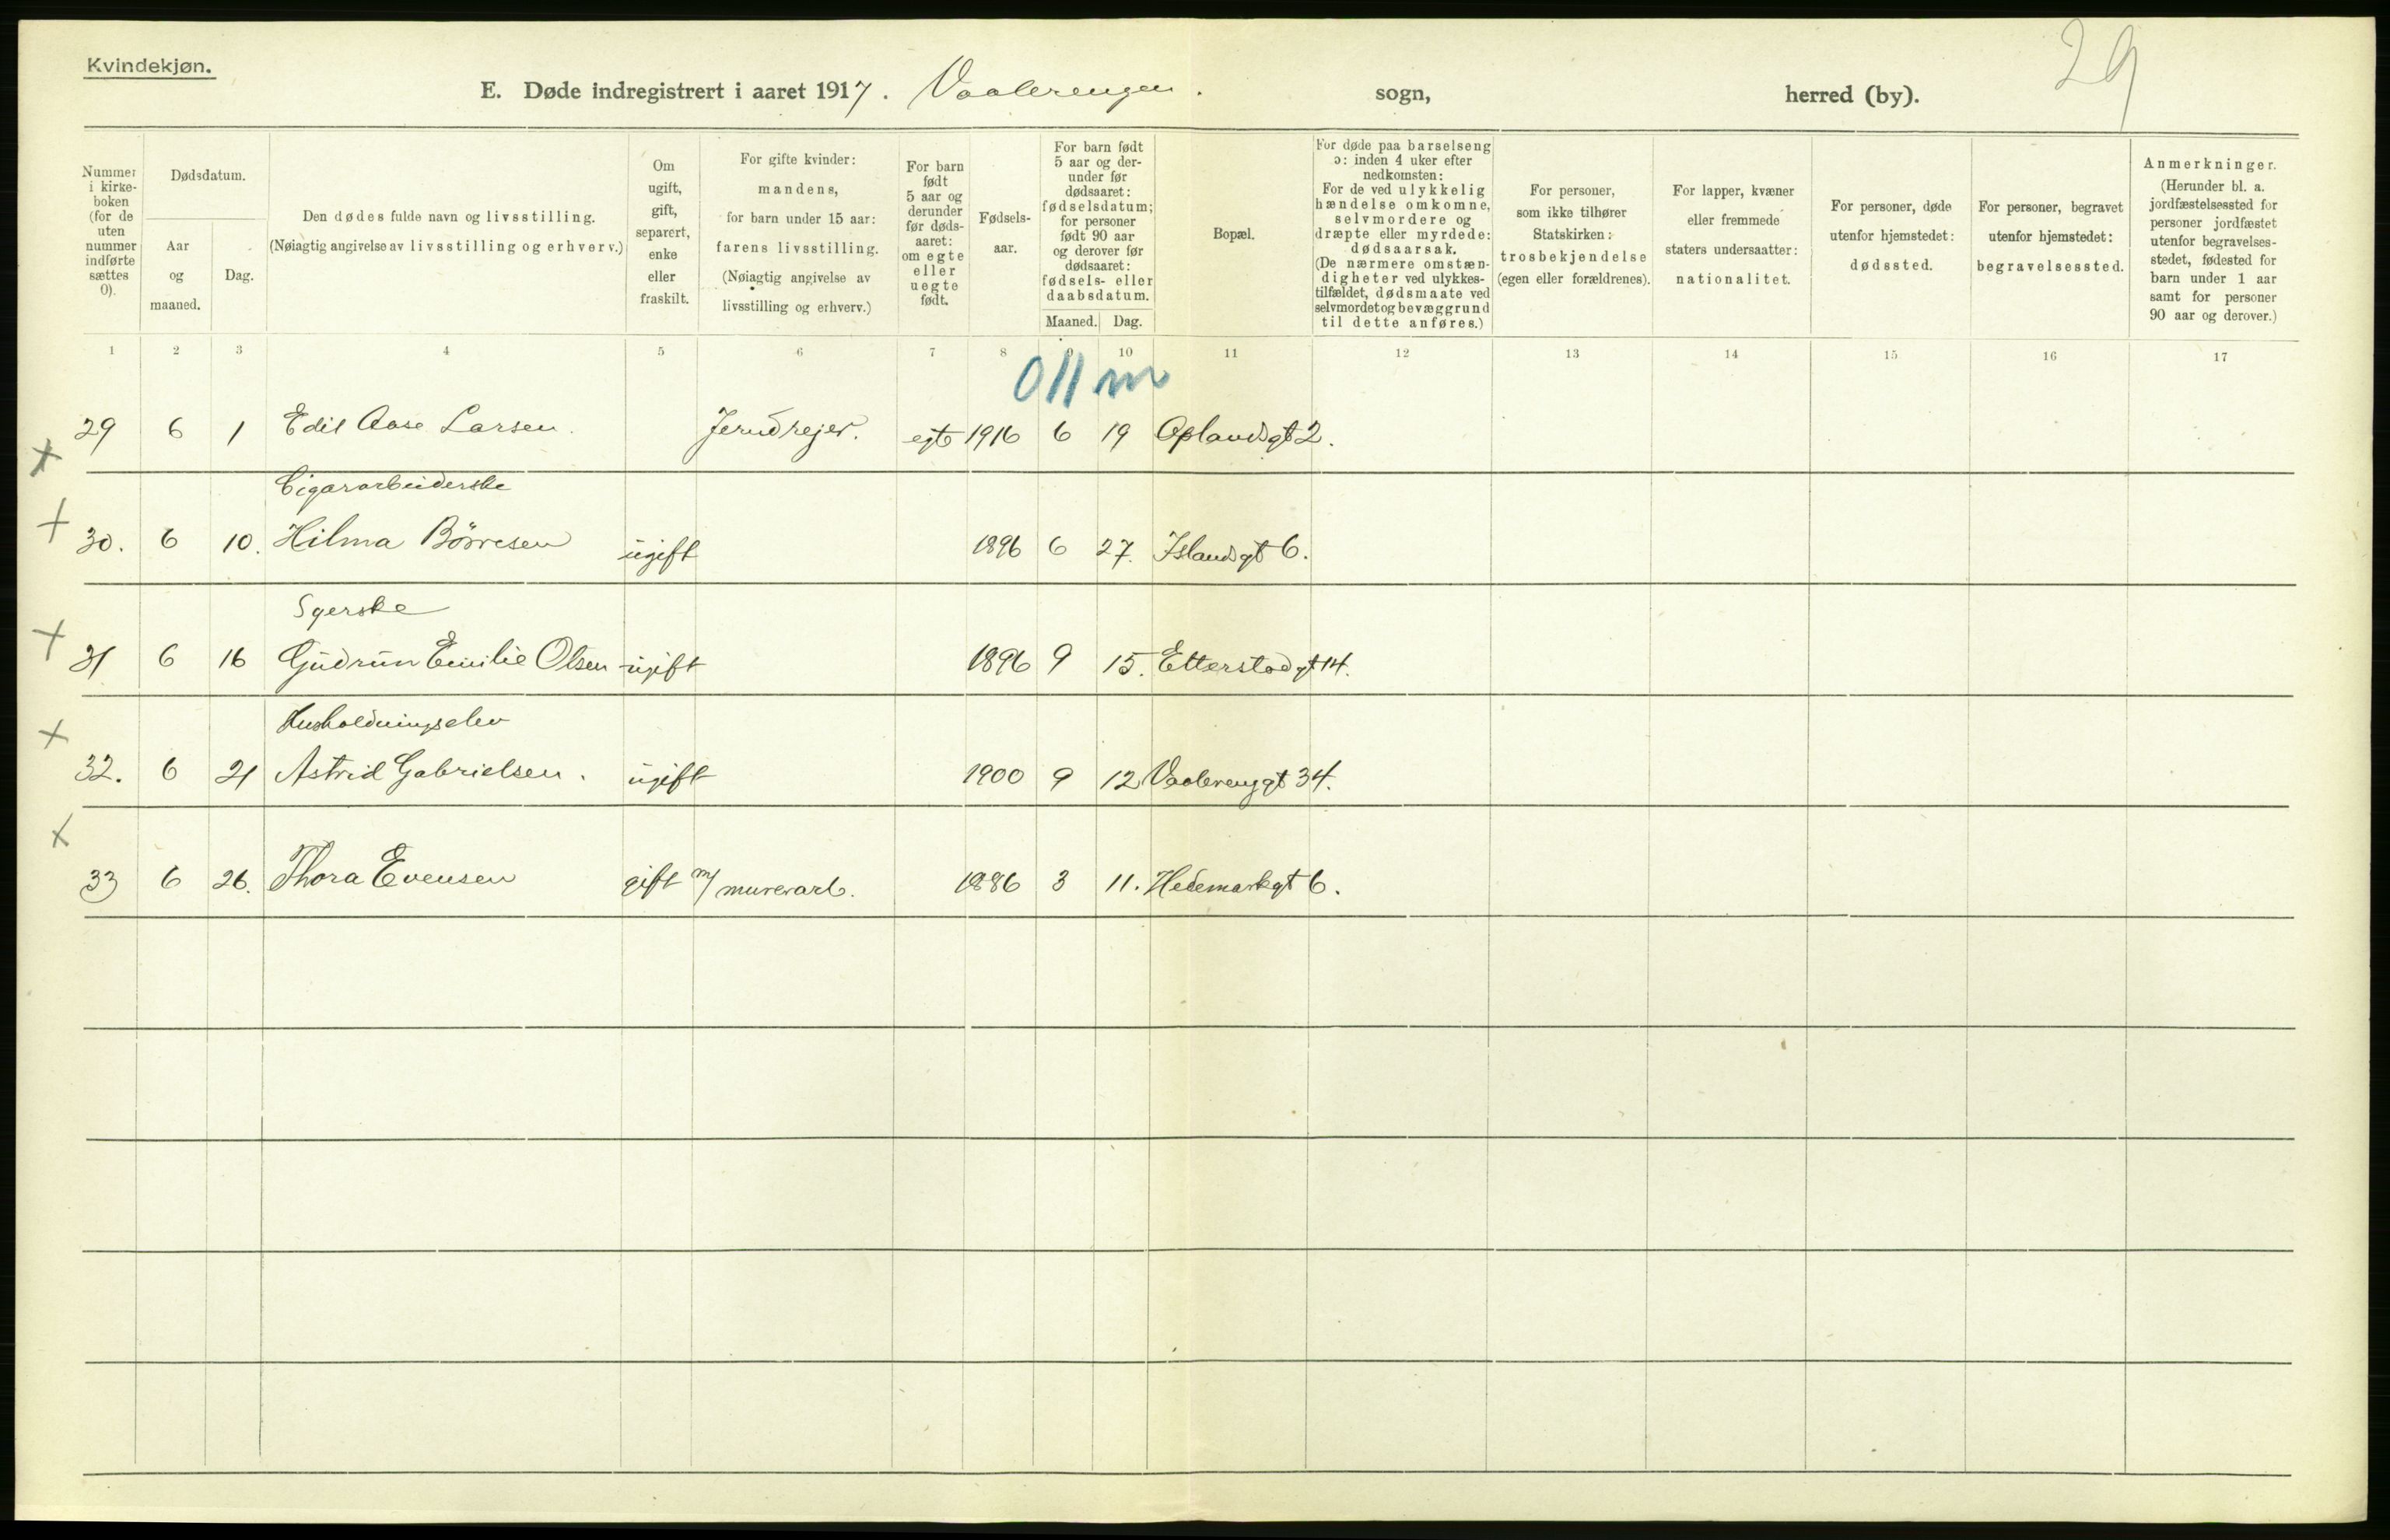 Kvindekjøn.
29
E. Døde indregistrert i aaret 1917. Vaalerengen. sogn, herred (by).
Nummer i kirke-boken (for de uten nummer indførte sættes 0).
Dødsdatum.
Aar og maaned.
Dag.
Den dødes fulde navn og livsstilling.
(Nøiagtig angivelse av livsstilling og erhverv.)
Om ugift, gift, separert, enke eller fraskilt.
For gifte kvinder: mandens, for barn under 15 aar: farens livsstilling. (Nøiagtig angivelse av livsstilling og erhverv.)
For barn født 5 aar og derunder før døds-aaret: om egte eller uegte født.
Fødsels-aar.
For barn født 5 aar og der-under før dødsaaret: fødselsdatum; for personer født 90 aar og derover før dødsaaret: fødsels- eller daabsdatum.
Maaned.
Dag.
Bopæl.
For døde paa barselseng ɔ: inden 4 uker efter nedkomsten: For de ved ulykkelig hændelse omkomne, selvmordere og dræpte eller myrdede: dødsaarsak. (De nærmere omstæn-digheter ved ulykkes-tilfældet, dødsmaate ved selvmordet og bevæggrund til dette anføres.)
For personer, som ikke tilhører Statskirken: trosbekjendelse (egen eller forældrenes).
For lapper, kvæner eller fremmede staters undersaatter: nationalitet.
For personer, døde utenfor hjemstedet: dødssted.
For personer, begravet utenfor hjemstedet: begravelsessted.
Anmerkninger. (Herunder bl. a. jordfæstelsessted for personer jordfæstet utenfor begravelses-stedet, fødested for barn under 1 aar samt for personer 90 aar og derover.)
1 2 3 4 5 6 7 8 9 10 11 12 13 14 15 16 17
011 m
29 6 1 Edit Aase Larsen. Jerndrejer. egte 1916 6 19 Oplandsgt 2.
Cigararbeiderske
30. 6 10. Hilma Börresen ugift 1896 6 27. Islandsgt 6.
Syerske
31 6 16 Gudrun Emilie Olsen ugift 1896 9 15. Etterstadgt 14.
Husholdningselev
32. 6 21 Astrid Gabrielsen. ugift 1900 9 12 Vaalerenggt 34.
33 6 26. Thora Evensen gift m/ murerarb. 1886 3 11. Hedemarkgt 6.